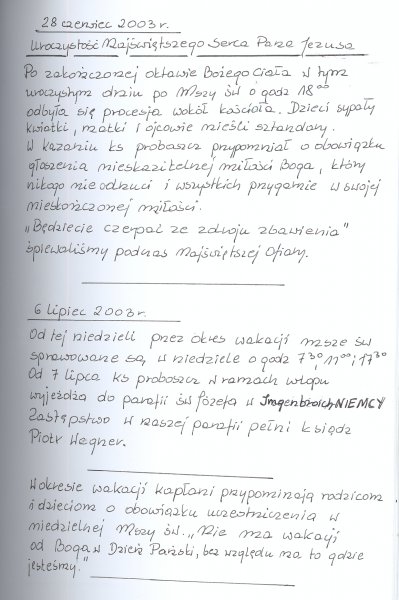 28 czerwiec 2003 r.
Uroczystość Najświętszego Serca Pana Jezusa
Po zakończonej oktawie Bożego Ciała w tym
uroczystym dniu po Mszy św o godz 18⁰⁰
odbyła się procesja wokół kościoła. Dzieci sypały
kwiatki, matki i ojcowie nieśli sztandary.
W kazaniu ks proboszcz przypomniał o obowiązku
głoszenia nieskazitelnej miłości Boga, który
nikogo nie odrzuci i wszystkich przygarnie w swojej
nieskończonej miłości.
„Będziecie czerpać ze zdroju zbawienia"
śpiewaliśmy podczas Najświętszej Ofiary.
6 lipiec 2003 r.
Od tej niedzieli przez okres wakacji msze św
sprawowane są w niedziele o godz 7³⁰, 11⁰⁰ i 17³⁰
Od 7 lipca ks proboszcz w ramach urlopu
wyjeżdża do parafii św Józefa w Imgenbroich, NIEMCY
Zastępstwo w naszej parafii pełni ksiądz
Piotr Wegner.
W okresie wakacji kapłani przypominają rodzicom
i dzieciom o obowiązku uczestniczenia w
niedzielnej Mszy św. „Nie ma wakacji
od Boga w Dzień Pański, bez względu na to gdzie
jesteśmy."